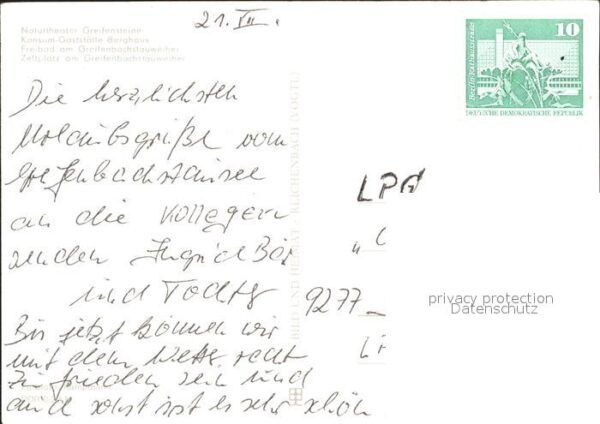 21. VII.
Naturtheater Greifensteine
Konsum-Gaststätte Berghaus
Freibad am Greifenbachstauweiher
Zeltplatz am Greifenbachstauweiher
10
Berlin, Rathausstraße
DEUTSCHE DEMOKRATISCHE REPUBLIK
Die herzlichsten
Urlaubsgrüße vom
Greifenbachstausee
an die Kollegen
senden Ingrid
und Tochter
Bis jetzt können wir
mit dem Wetter recht
zufrieden sein und
auch sonst ist es sehr schön
BILD UND HEIMAT REICHENBACH (VOGTL)
LPG
9277
privacy protection
Datenschutz